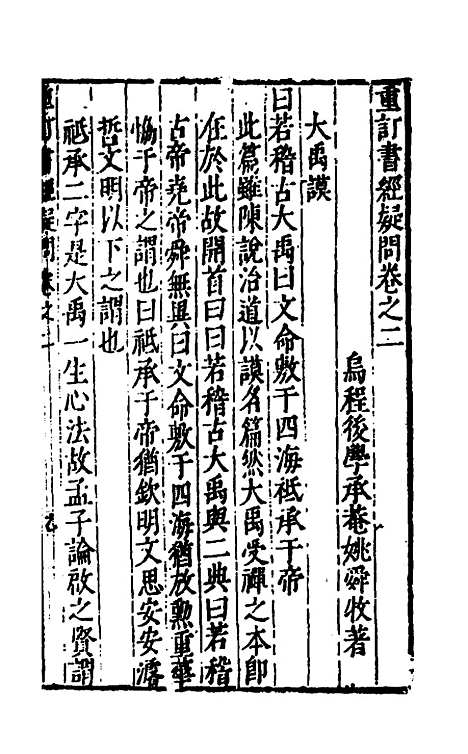 重訂書經疑問卷之二
烏程後學承菴姚舜牧著
大禹謨
曰若稽古大禹曰文命敷于四海祗承于帝
此篇雖陳說治道以謨名篇然大禹受禪之本即
在於此故開首曰曰若稽古大禹與二典曰若稽
古帝堯帝舜無異曰文命敷于四海猶放勳重華
恊于帝之謂也曰祗承于帝猶欽明文思安安濬
哲文明以下之謂也
祗承二字是大禹一生心法故孟子論啟之賢謂
重訂書經疑問卷之二